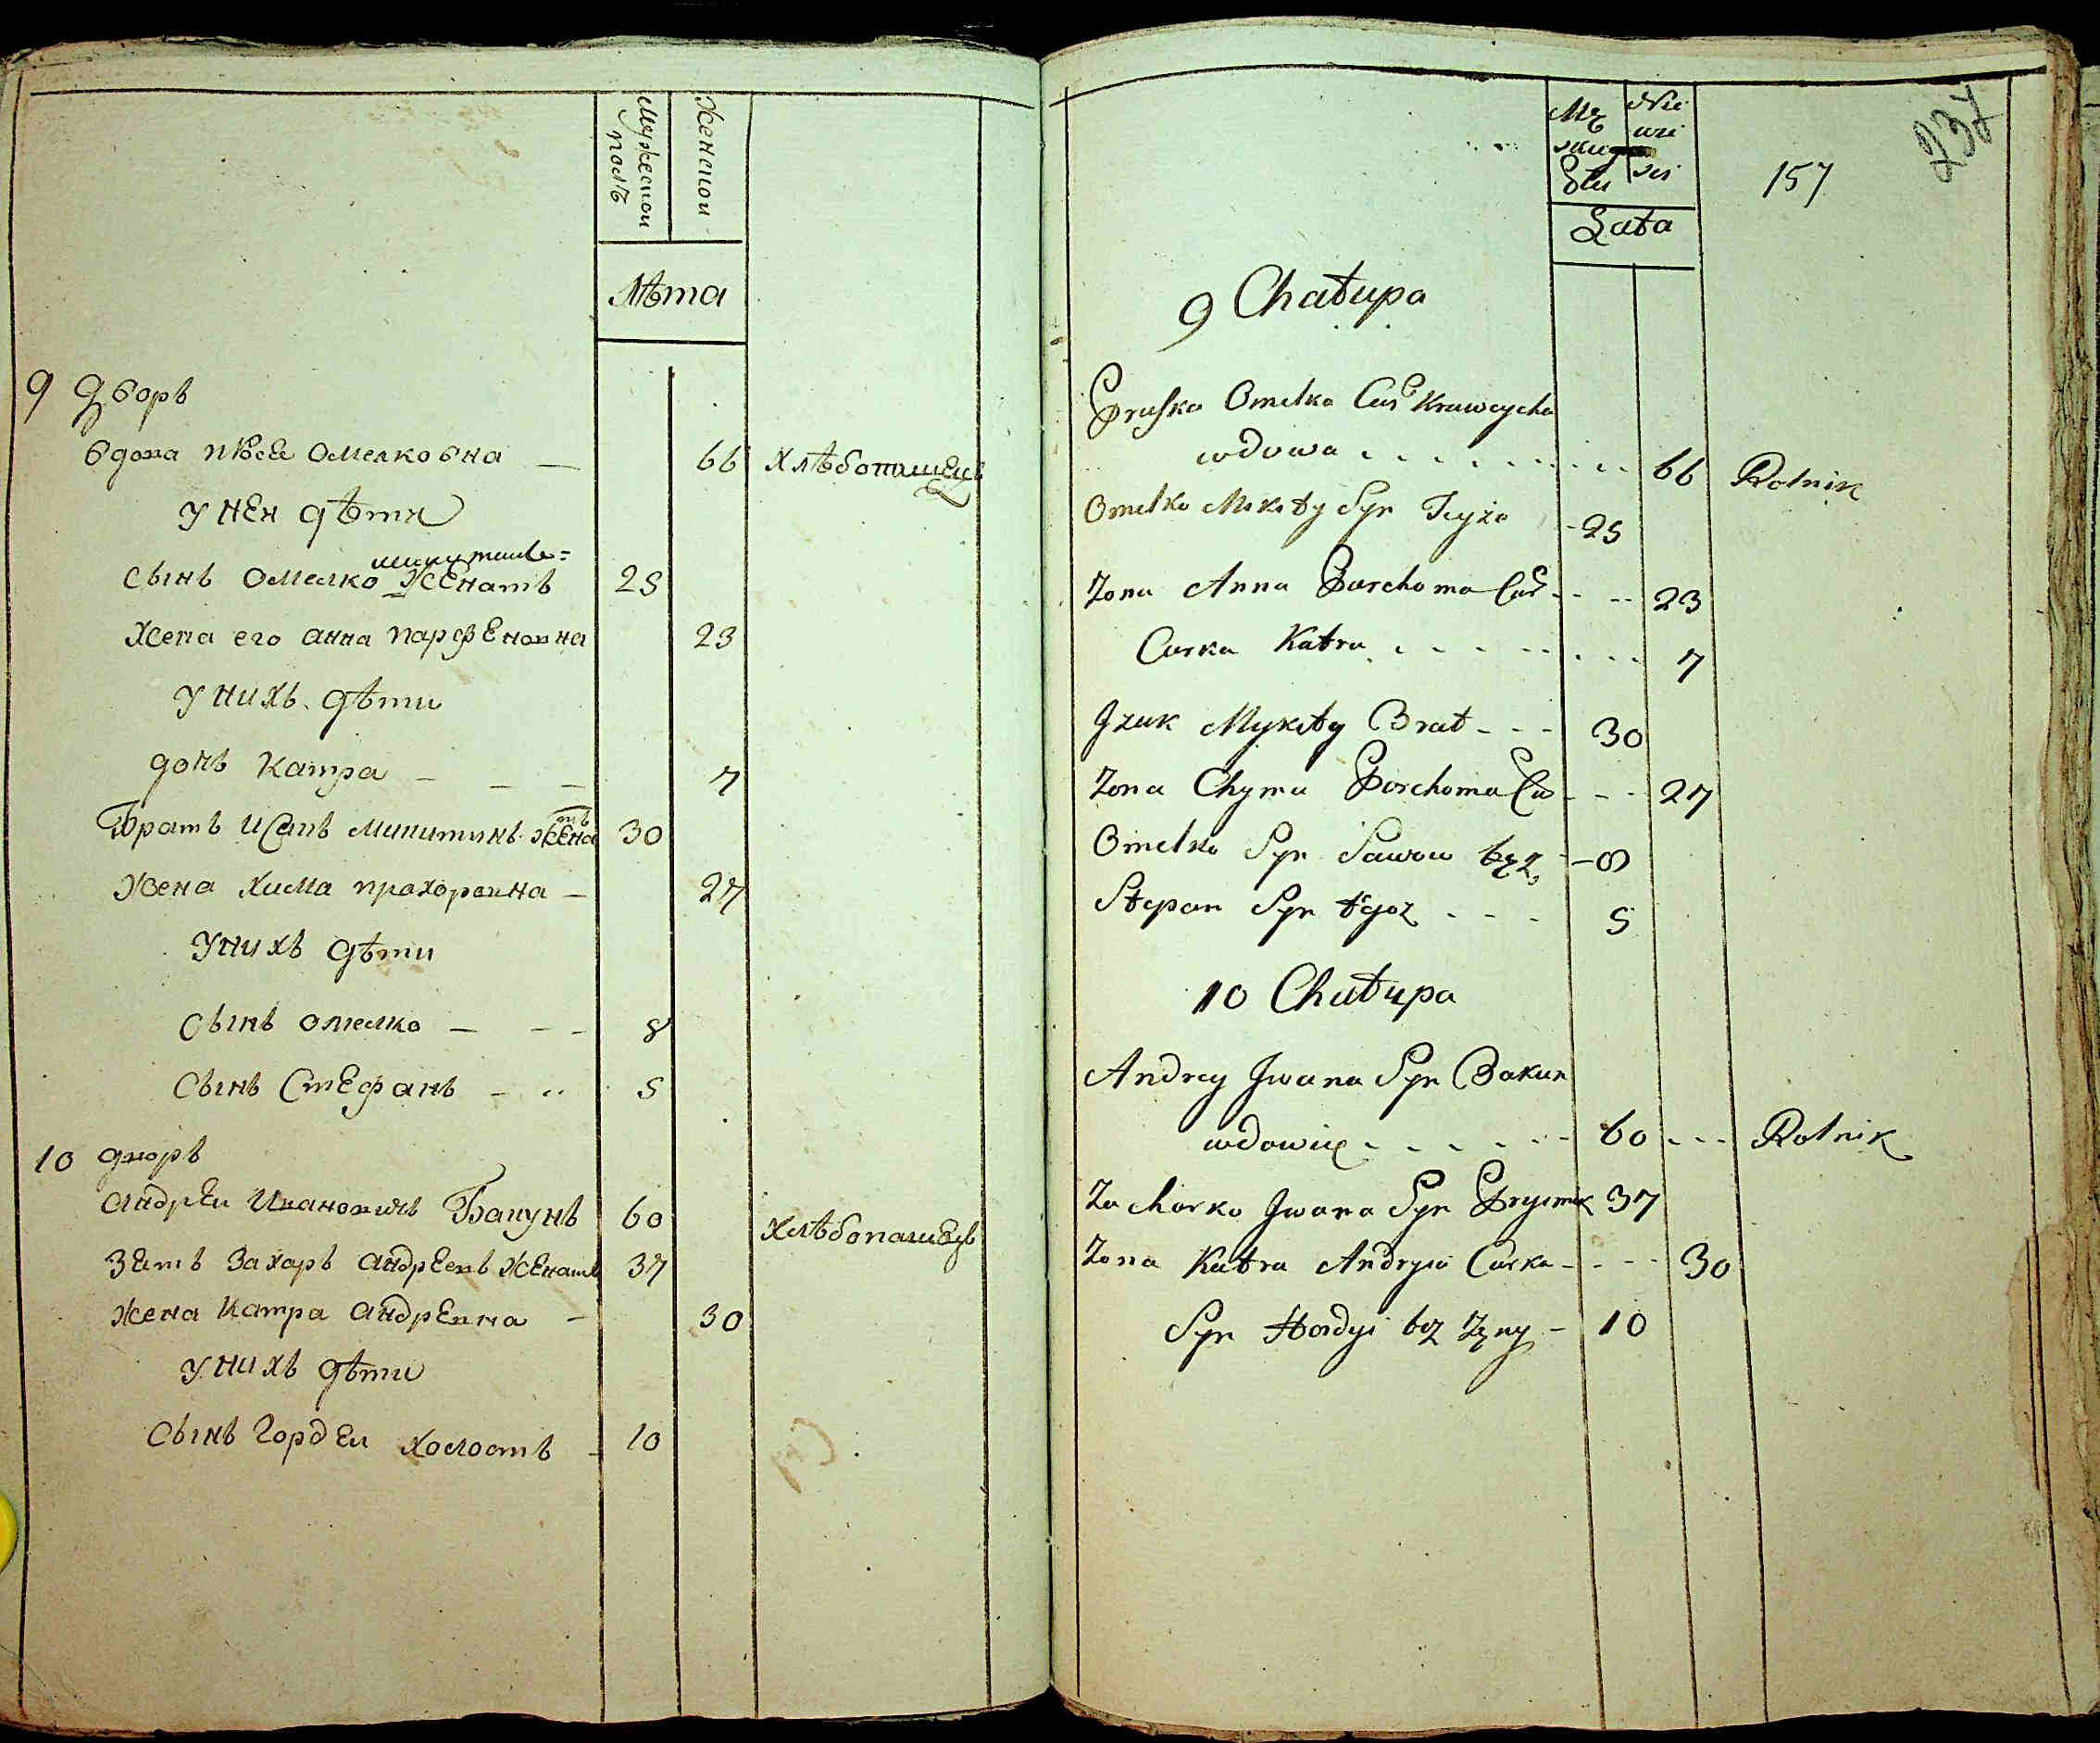 Мужескои
полъ
Женскои
лѣта
9 дворъ
вдова прися омелковна — 66 хлѣбопашецъ
у неи дѣти
микитинъ=
сынъ омелко женатъ 25
жена его анна парфеновна 23
у нихъ дѣти
дочь катра — — — 7
братъ исакъ микитинъ женатъ 30
жена хима прохоровна — 27
у нихъ дѣти
сынъ омелко — - - 8
сынъ стефанъ - .. 5
10 дворъ
андреи ивановичъ бакунъ 60 хлѣбопашецъ
зять захаръ андреевъ женатъ 37
жена катра андреевна - 30
у нихъ дѣти
сынъ гордеи холостъ - 10
Męzkiey
Płci
Niewieściey
Lata
157
237
9 Chałupa
Pryśka Omelka Cur Krawczycha
wdowa . . . . . . . . 66 Rolnik
Omelko Mikity Syn Teyże - 25
Zona Anna Parchoma Cur - - - 23
Curka Katra . . . . . . . 7
Izak Mykity Brat - - - 30
Zona Chyma Parchoma Cur - - - 27
Omelko Syn - 8
Stepan Syn tegoż - - - 5
10 Chałupa
Andrey Iwana Syn Bakun
wdowiec - - - - - - 60 - - - Rolnik
Zacharko Iwana Syn Prysmak 37
Zona Katra Andryia Curka - - - - 30
Syn Hordyi bez żęny - 10